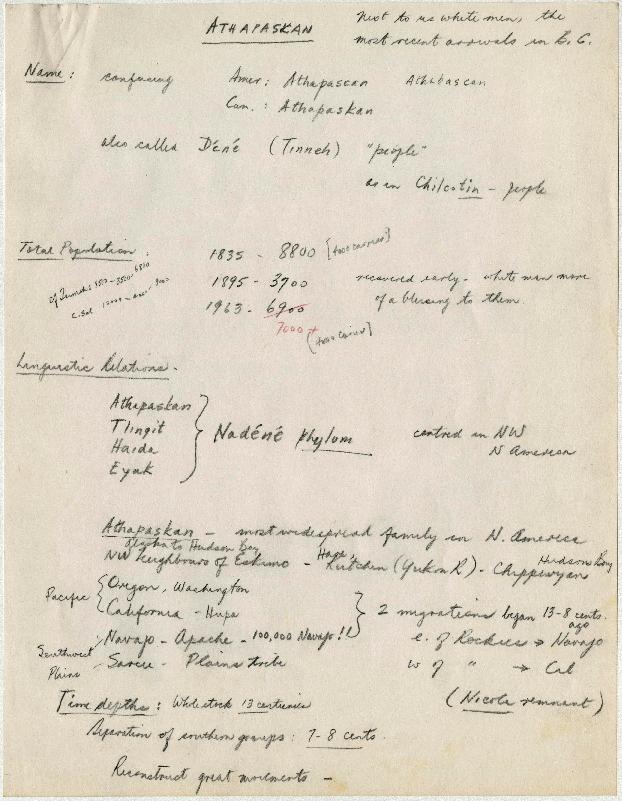 ATHAPASKAN
Next to us white men, the
most recent arrivals in B.C.
Name: confusing Amer: Athapascan Athabascan
Can.: Athapaskan
also called Déné (Tinneh) "people"
as in Chilcotin - people
Total Population:
1835 - 8800 [4000 Carriers]
1895 - 3700 recovered early - white man more
of a blessing to them.
1963 - 6900
7000+
Linguistic Relations -
Athapaskan
Tlingit
Haida
Eyak
Nadéné Phylum centred in NW
N America
Athapaskan - most widespread family in N. America
Alaska to Hudson Bay
NW Neighbours of Eskimo - Hare, Kutchin (Yukon R) - Chippewyan Hudson Bay
Pacific Oregon, Washington
California - Hupa
2 migrations began 13-8 cents. ago
Navajo - Apache - 100,000 Navajo!! e. of Rockies → Navajo
Southwest
Plains Sarcee - Plains tribe w of " → Cal
(Nicola remnant)
Time depths: Whole stock 13 centuries
Separation of southern groups: 7-8 cents.
Reconstruct great movements -